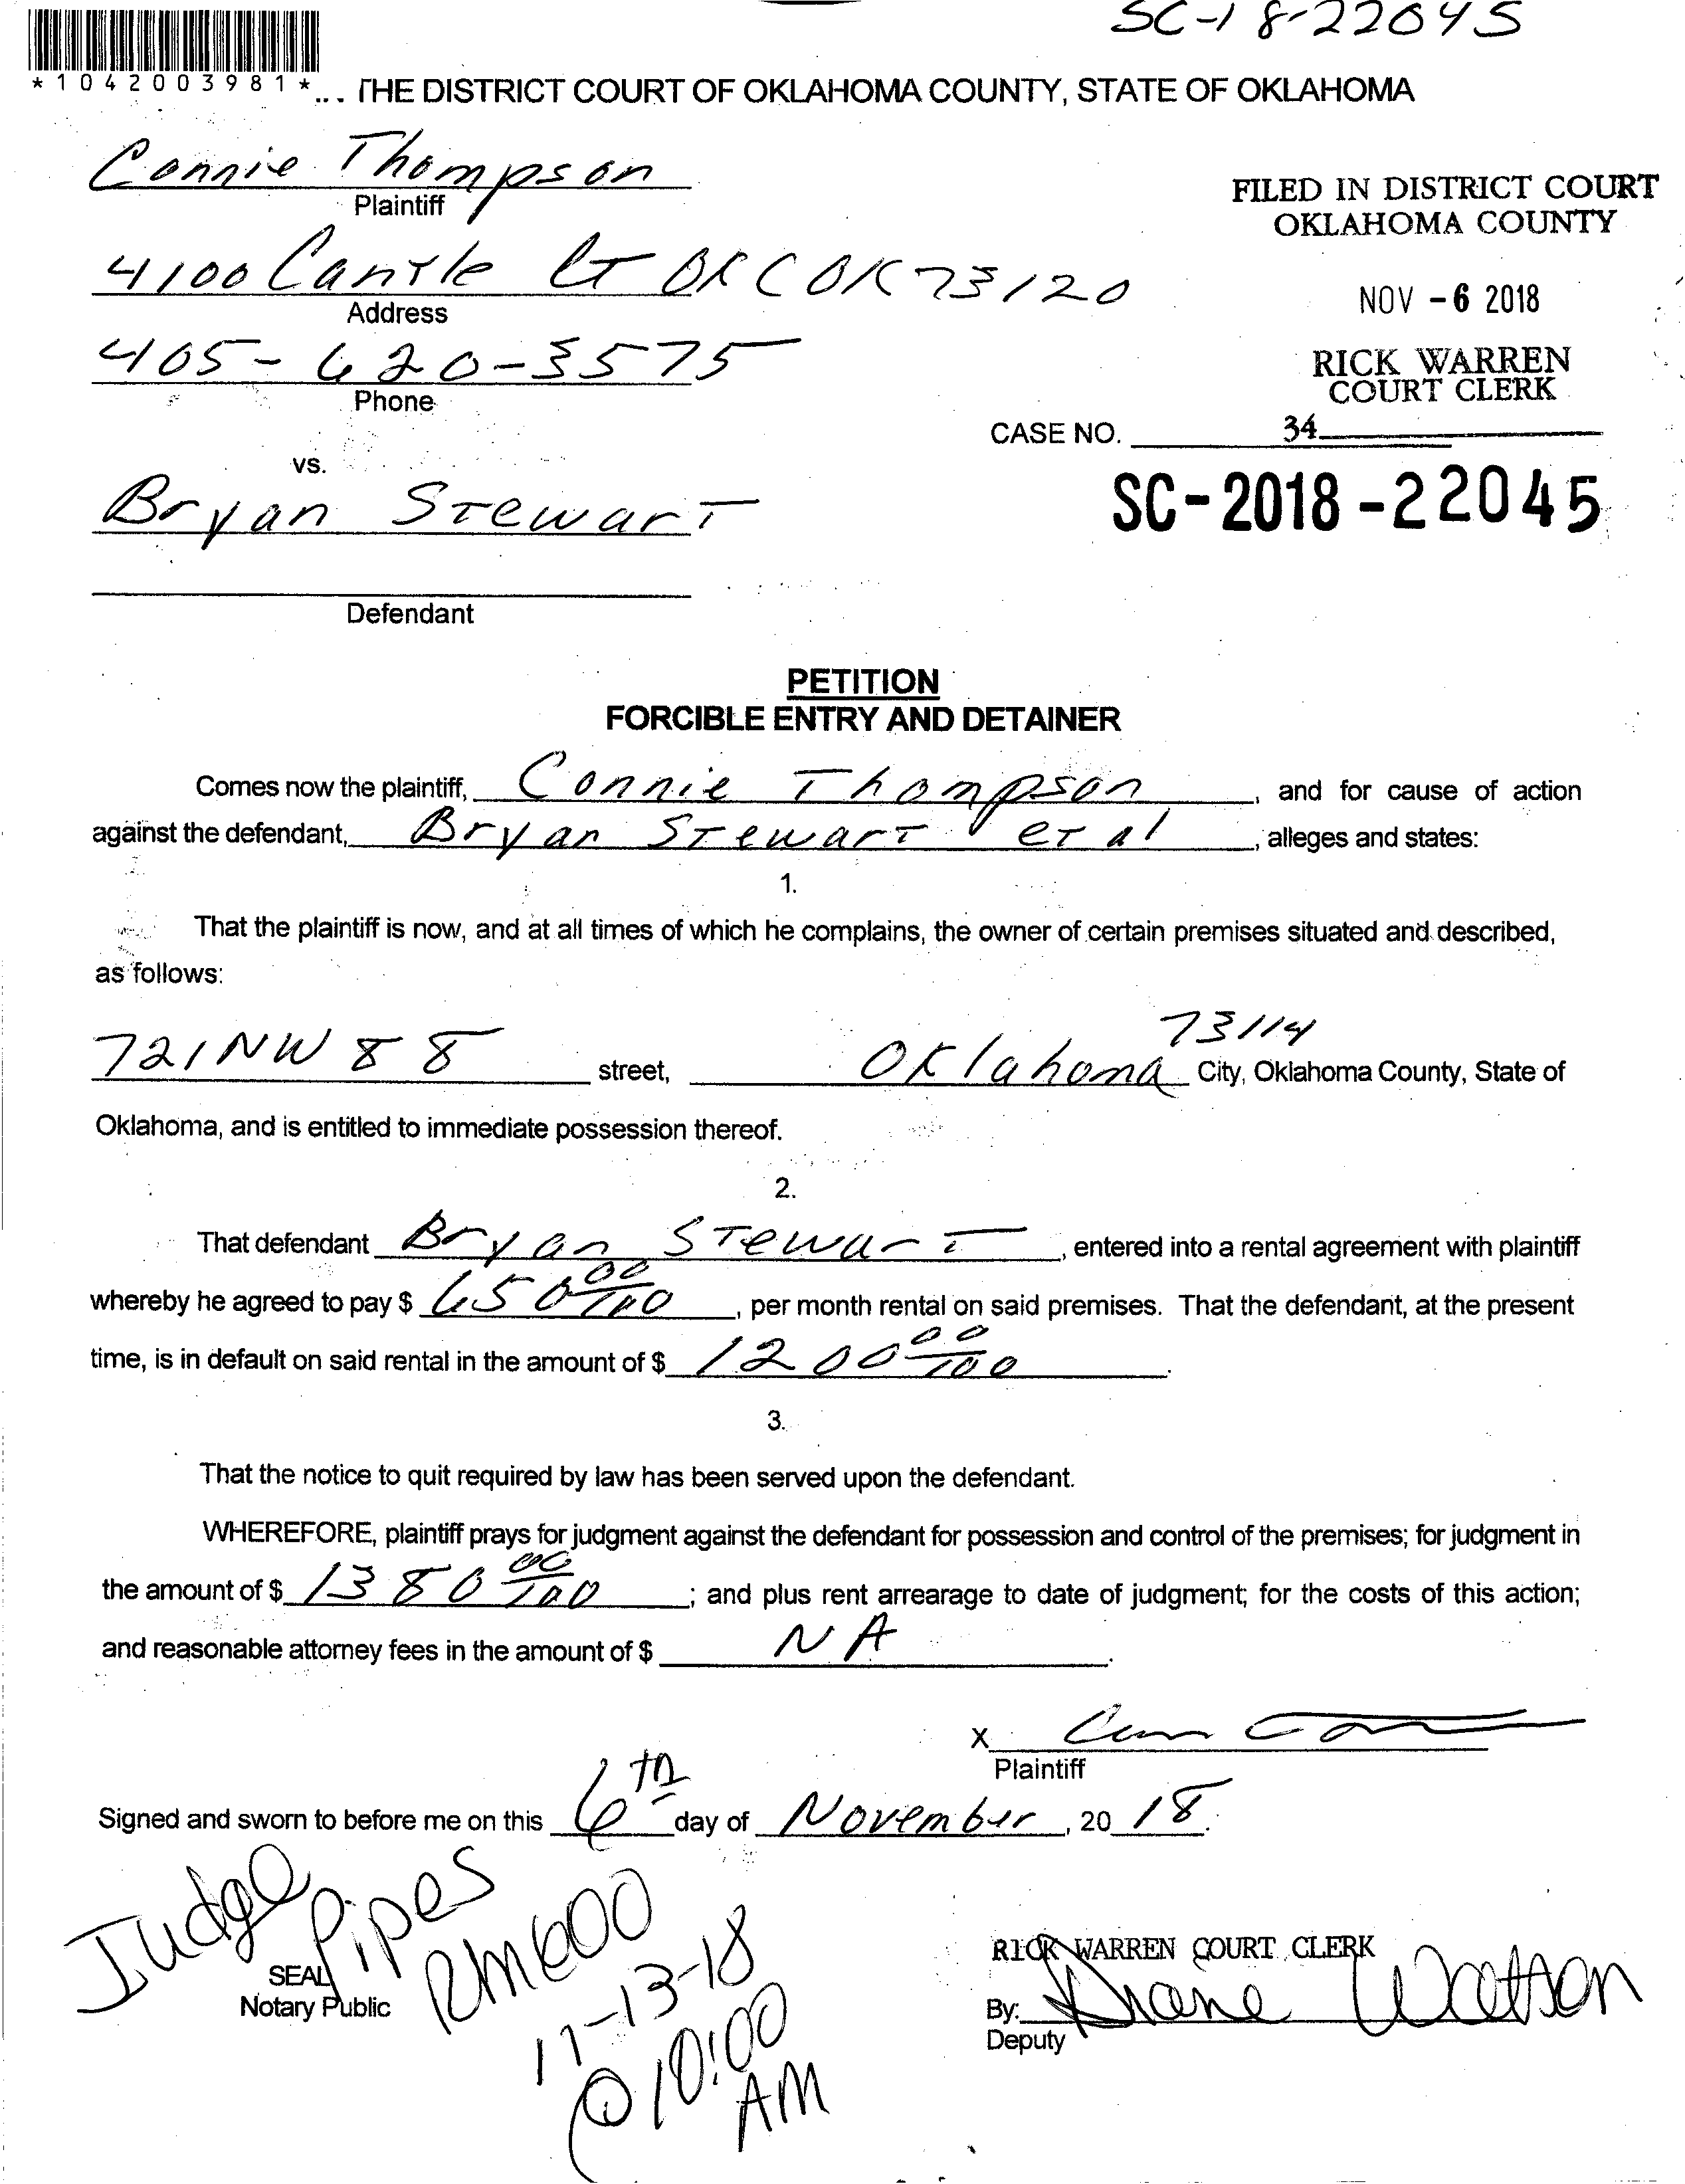 SC-18-22045
*1042003981*
THE DISTRICT COURT OF OKLAHOMA COUNTY, STATE OF OKLAHOMA
Connie Thompson
Plaintiff
FILED IN DISTRICT COURT
OKLAHOMA COUNTY
4100 Cantle Ct OKC OK 73120
Address
NOV -6 2018
405-620-3575
Phone
RICK WARREN
COURT CLERK
CASE NO. 34
vs.
SC-2018-22045
Bryan Stewart
Defendant
PETITION
FORCIBLE ENTRY AND DETAINER
Comes now the plaintiff, Connie Thompson, and for cause of action
against the defendant, Bryan Stewart et al, alleges and states:
1.
That the plaintiff is now, and at all times of which he complains, the owner of certain premises situated and described,
as follows:
73114
721 NW 88 street, Oklahoma City, Oklahoma County, State of
Oklahoma, and is entitled to immediate possession thereof.
2.
That defendant Bryan Stewart, entered into a rental agreement with plaintiff
whereby he agreed to pay $ 650 00/100, per month rental on said premises. That the defendant, at the present
time, is in default on said rental in the amount of $ 1200 00/100.
3.
That the notice to quit required by law has been served upon the defendant.
WHEREFORE, plaintiff prays for judgment against the defendant for possession and control of the premises; for judgment in
the amount of $ 1380 00/100; and plus rent arrearage to date of judgment; for the costs of this action;
and reasonable attorney fees in the amount of $ NA.
X
Plaintiff
Signed and sworn to before me on this 6th day of November, 20 18.
Judge Pipes
RM600
11-13-18
@10:00
AM
SEAL
Notary Public
RICK WARREN COURT CLERK
By: Diane Watson
Deputy